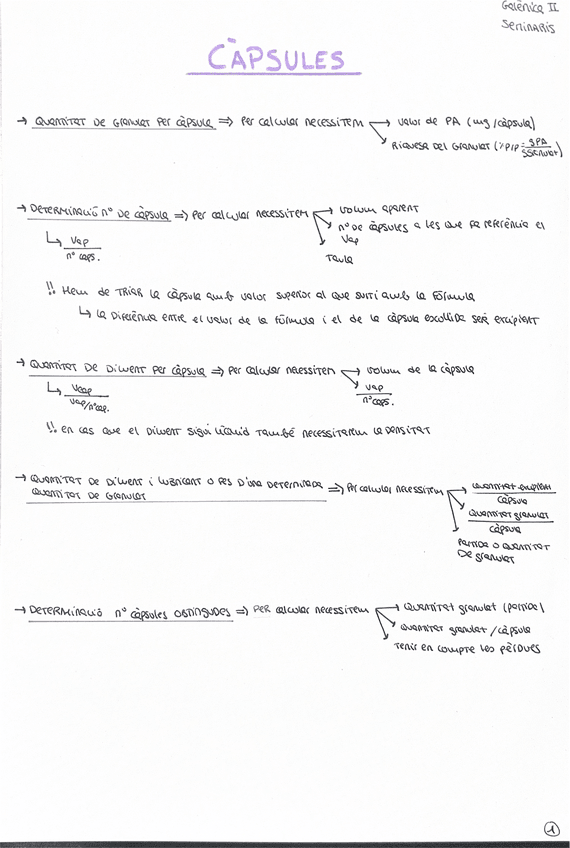 Galènica II
Seminaris
CÀPSULES
→ Quantitat de granulat per càpsula ⇒ Per calcular necessitem → Valor de PA (mg/càpsula)
↘ Riquesa del granulat (% p/p = gPA / gGranulat)
→ Determinació nº de càpsula ⇒ Per calcular necessitem → Volum aparent
↘ nº de càpsules a les que fa referència el Vap
↘ Taula
↳ Vap / nº caps.
!! Hem de triar la càpsula amb valor superior al que surti amb la fórmula
↳ La diferència entre el valor de la fórmula i el de la càpsula escollida serà excipient
→ Quantitat de diluent per càpsula ⇒ Per calcular necessitem → Volum de la càpsula
↘ Vap / nº caps.
↳ Vcap / Vap/nºcap.
!! En cas que el diluent sigui líquid també necessitarem la densitat
→ Quantitat de diluent i lubricant o pes d'una determinada
quantitat de granulat ⇒ Per calcular necessitem → Quantitat / càpsula
↘ Quantitat granulat / càpsula
↘ Partida o quantitat
de granulat
→ Determinació nº càpsules obtingudes ⇒ Per calcular necessitem → Quantitat granulat (partida)
↘ Quantitat granulat / càpsula
↘ Tenir en compte les pèrdues
1